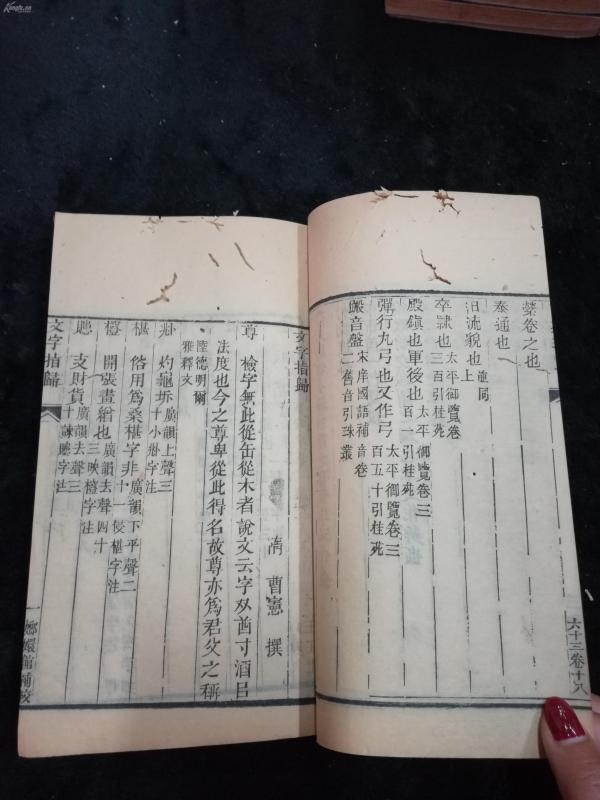 蘂卷之也
泰通也
汩流貌也上同
卒隷也太平御覽卷三百引桂苑
殿鎭也軍後也太平御覽卷三百一引桂苑
彈行九弓也又作弓太平御覽卷三百五十引桂苑
毈音盤宋庠國語補音卷二舊音引珠叢
六十三卷十八
文字指歸
隋 曹憲 撰
尊 檢字無此從缶從木者說文云字从酋寸酒官
法度也今之尊卑從此得名故尊亦爲君父之稱
陸德明爾雅釋文
灼龜坼廣韻上聲三十小字注
椹 俗用爲桑椹字非廣韻下平聲二十一侵椹字注
開張畫繒也廣韻去聲四十三映字注
支財貨廣韻去聲三十諫字注
文字指歸
一
嫏嬛館補校